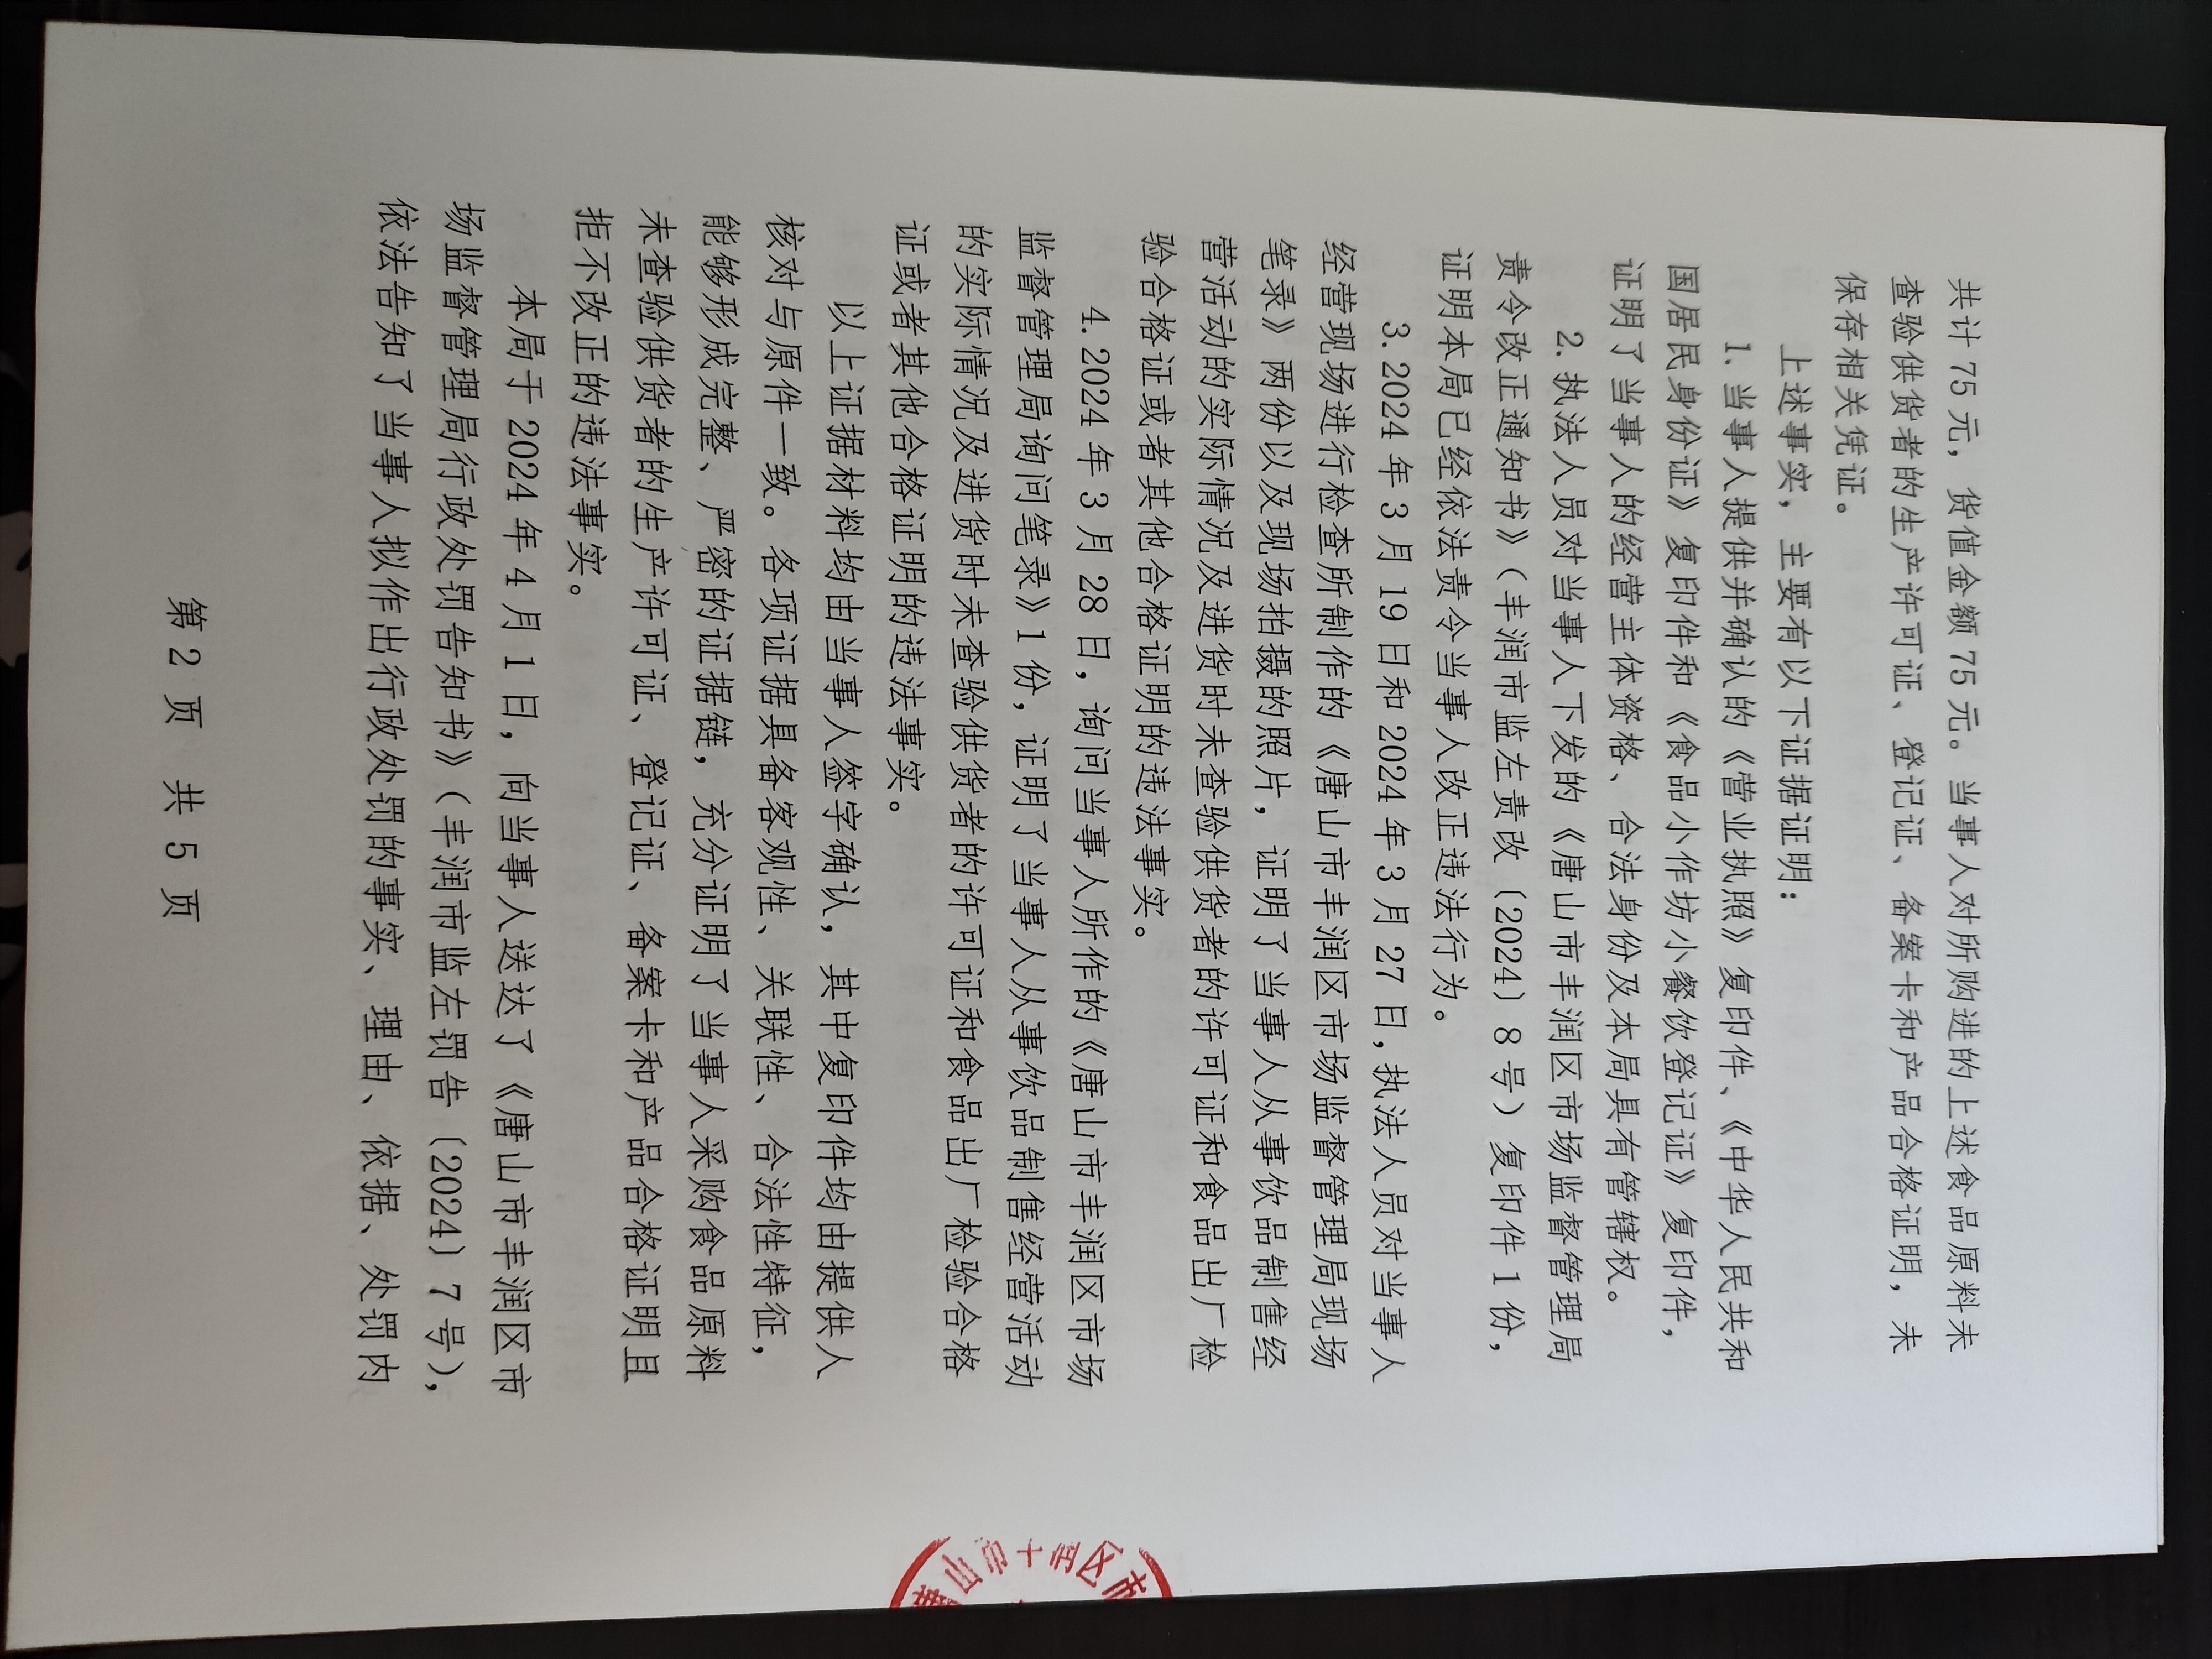 共计 75 元，货值金额 75 元。当事人对所购进的上述食品原料未
查验供货者的生产许可证、登记证、备案卡和产品合格证明，未
保存相关凭证。
上述事实，主要有以下证据证明：
1. 当事人提供并确认的《营业执照》复印件、《中华人民共和
国居民身份证》复印件和《食品小作坊小餐饮登记证》复印件，
证明了当事人的经营主体资格、合法身份及本局具有管辖权。
2. 执法人员对当事人下发的《唐山市丰润区市场监督管理局
责令改正通知书》（丰润市监左责改〔2024〕8 号）复印件 1 份，
证明本局已经依法责令当事人改正违法行为。
3.2024 年 3 月 19 日和 2024 年 3 月 27 日,执法人员对当事人
经营现场进行检查所制作的《唐山市丰润区市场监督管理局现场
笔录》两份以及现场拍摄的照片，证明了当事人从事饮品制售经
营活动的实际情况及进货时未查验供货者的许可证和食品出厂检
验合格证或者其他合格证明的违法事实。
4.2024 年 3 月 28 日，询问当事人所作的《唐山市丰润区市场
监督管理局询问笔录》1 份，证明了当事人从事饮品制售经营活动
的实际情况及进货时未查验供货者的许可证和食品出厂检验合格
证或者其他合格证明的违法事实。
以上证据材料均由当事人签字确认，其中复印件均由提供人
核对与原件一致。各项证据具备客观性、关联性、合法性特征，
能够形成完整、严密的证据链，充分证明了当事人采购食品原料
未查验供货者的生产许可证、登记证、备案卡和产品合格证明且
拒不改正的违法事实。
本局于 2024 年 4 月 1 日，向当事人送达了《唐山市丰润区市
场监督管理局行政处罚告知书》（丰润市监左罚告〔2024〕7 号），
依法告知了当事人拟作出行政处罚的事实、理由、依据、处罚内
第 2 页 共 5 页